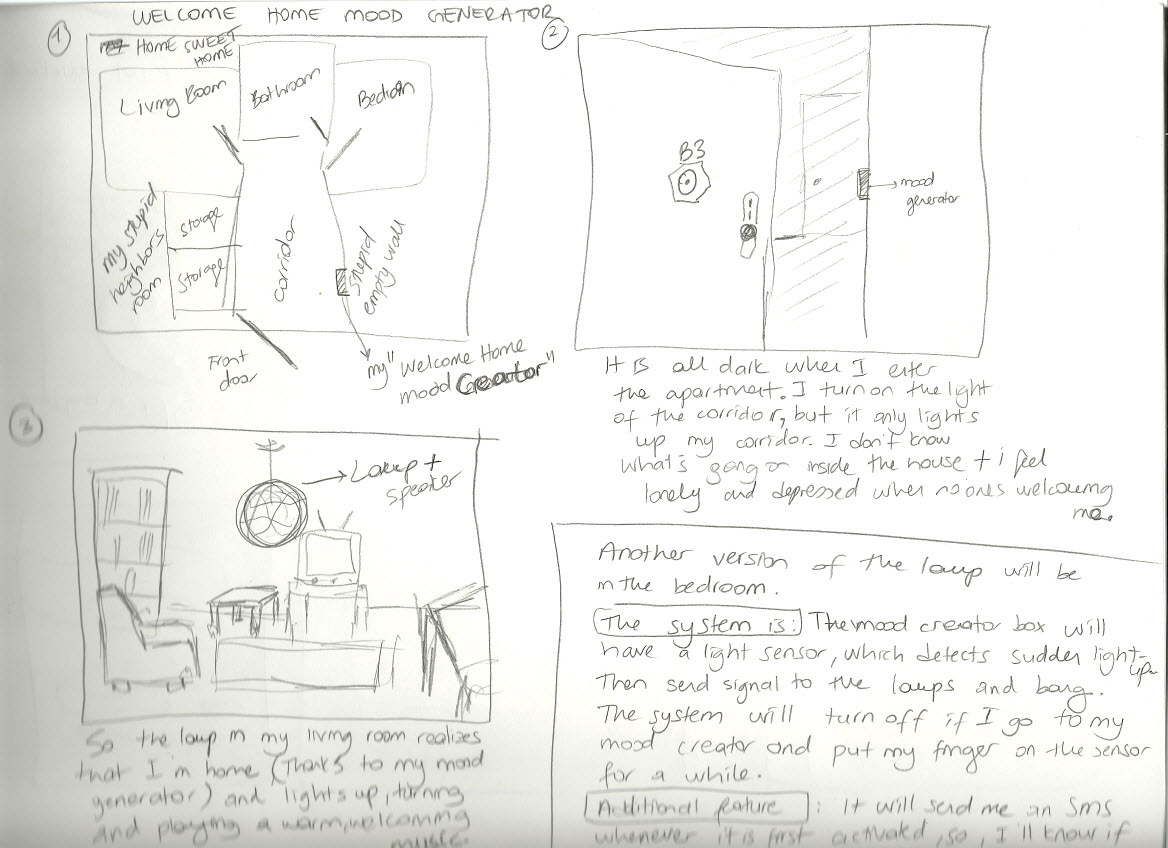 WELCOME HOME MOOD GENERATOR
1
HOME SWEET
HOME
Living Room
Bathroom
Bedroom
my stupid
neighbors
room
Storage
Storage
corridor
Stupid
empty wall
Front
door
my "Welcome Home
mood Creator"
2
B3
mood
generator
It is all dark when I enter
the apartment. I turn on the light
of the corridor, but it only lights
up my corridor. I don't know
what's going on inside the house + i feel
lonely and depressed when no ones welcoming
me.
3
Lamp +
speaker
So the lamp in my living room realizes
that I'm home (Thanks to my mood
generator) and lights up, turning
and playing a warm, welcoming
music.
Another version of the lamp will be
in the bedroom.
The system is: The mood creator box will
have a light sensor, which detects sudden light-
up.
Then send signal to the lamps and bang.
The system will turn off if I go to my
mood creator and put my finger on the sensor
for a while.
Additional feature : It will send me an SMS
whenever it is first activated, so, I'll know if